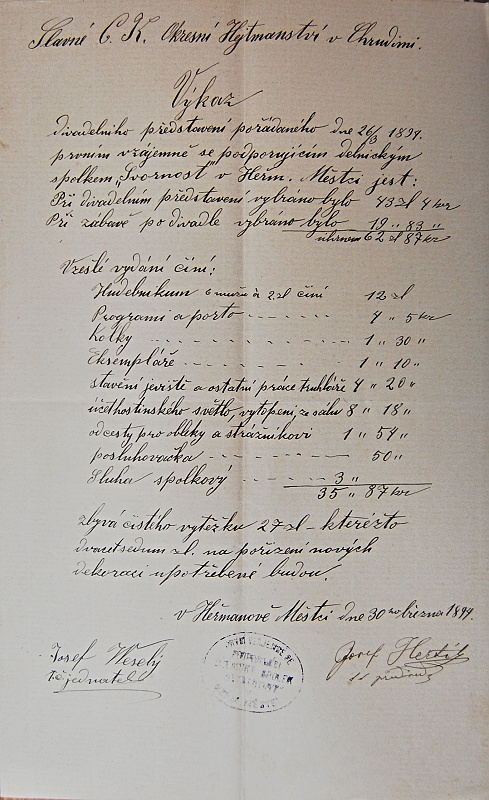 Slavné C. K. Okresní Hejtmanství v Chrudimi.
Výkaz
divadelního představení pořádaného dne 26/3 1894.
prvním vzájemně se podporujícím delnickým
spolkem "Svornost" v Heřm. Městci jest:
Při divadelním představení vybráno bylo 43 zl 4 kr
Při zábavě po divadle vybráno bylo 19 „ 83 „
úhrnem 62 zl 87 kr
Vzešlé vydání činí:
Hudebníkum 6 mužů à 2 zl činí 12 zl
Programi a porto 4 „ 5 kr
Kolky 1 „ 30 „
Eksempláře 1 „ 10 „
stavění jeviště a ostatní práce truhláře 4 „ 20 „
účet hostinského světlo, vytopení ze sálu 8 „ 18 „
od cesty pro obleky a strážníkovi 1 „ 54 „
posluhovačka 50 „
Sluha spolkový 3 „
35 „ 87 kr
zbývá čistého výtěžku 27 zl – kteréžto
dvacetsedum zl. na pořízení nových
dekorací upotřebené budou.
v Heřmanově Městci dne 30ho března 1894.
Josef Weselý
jednatel
Josef